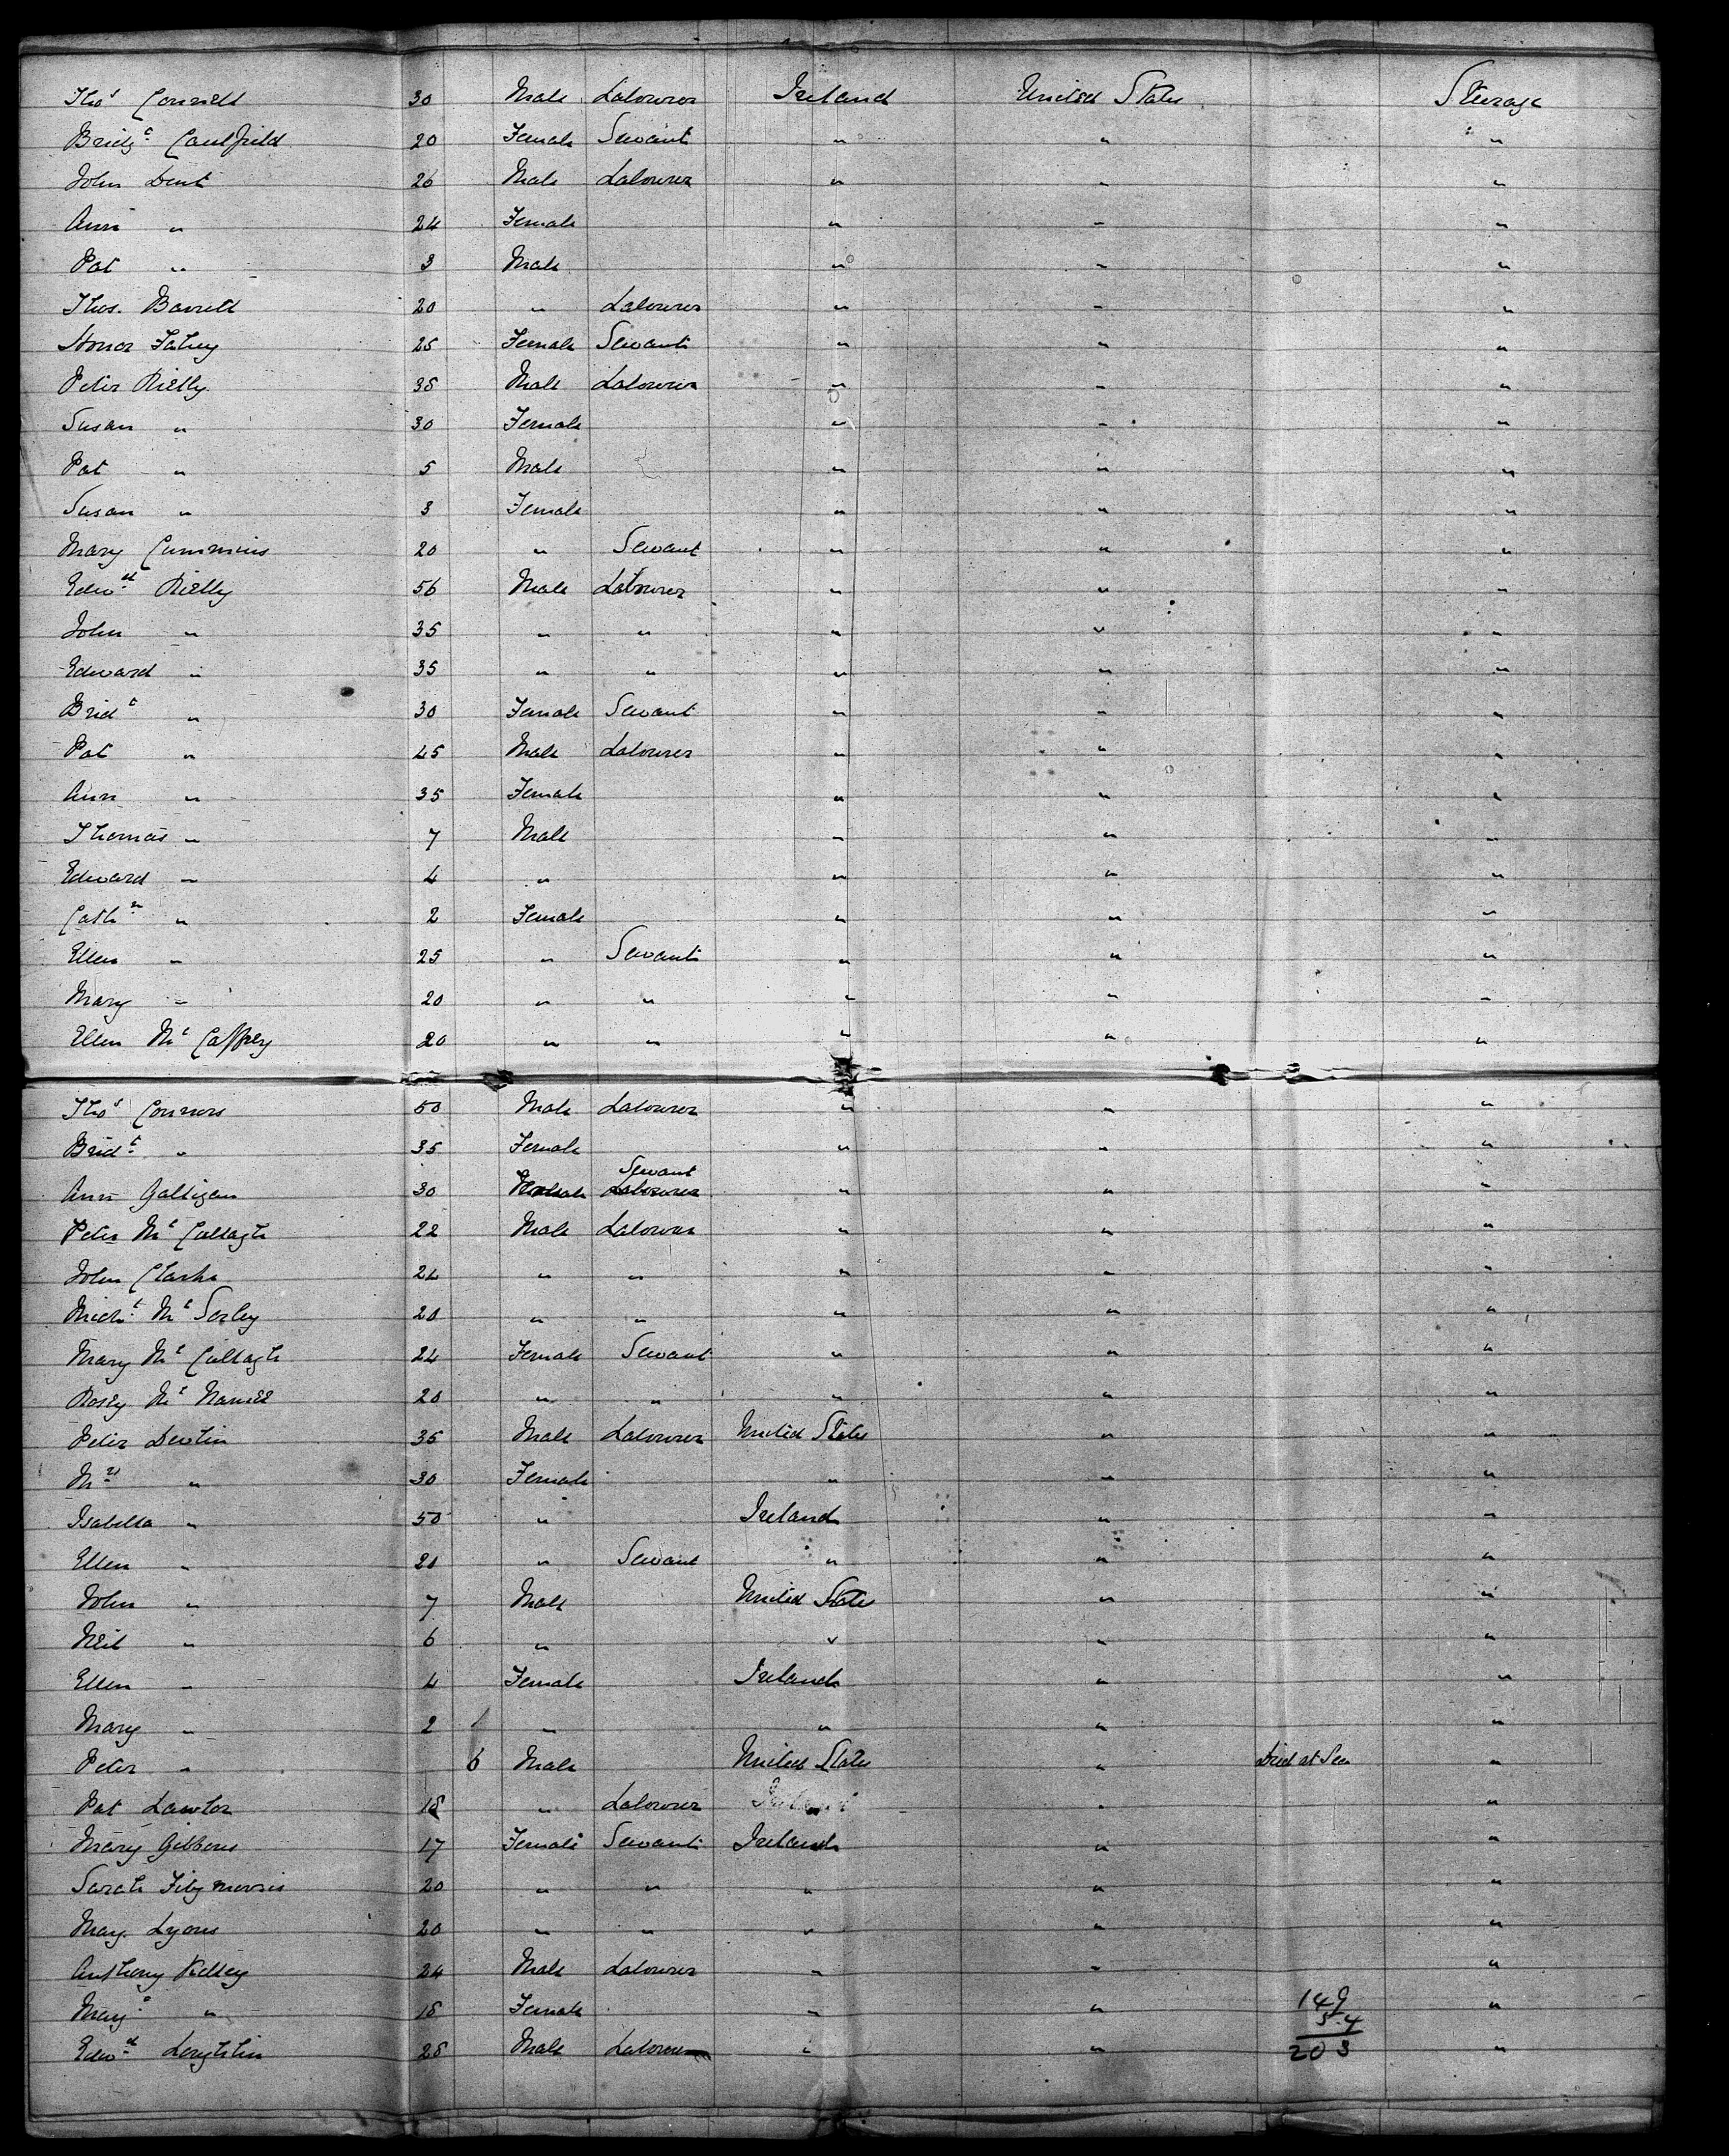 Thos Connell 30 Male Labourer Ireland United States Steerage
Bridgt Caulfield 20 Female Servant " " "
John Dent 26 Male Labourer " " "
Ann " 24 Female " " "
Pat " 3 Male " " "
Thos. Barrett 20 " Labourer " " "
Honor Fahey 25 Female Servant " " "
Peter Rielly 35 Male Labourer " " "
Susan " 30 Female " " "
Pat " 5 Male " " "
Susan " 3 Female " " "
Mary Cummins 20 " Servant " " "
Edwd Rielly 56 Male Labourer " " "
John " 35 " " " " "
Edward " 35 " " " " "
Bridt " 30 Female Servant " " "
Pat " 45 Male Labourer " " "
Ann " 35 Female " " "
Thomas " 7 Male " " "
Edward " 4 " " " "
Cathn " 2 Female " " "
Ellen " 25 " Servant " " "
Mary " 20 " " " " "
Ellen Mc Caffrey 20 " " " " "
Thos Connors 50 Male Labourer " " "
Bridt " 35 Female " " "
Servant
Ann Galligan 30 Labourer " " "
Peter Mc Cullagh 22 Male Labourer " " "
John Clarke 24 " " " " "
Michl Mc Sorley 20 " " " " "
Mary Mc Cullagh 24 Female Servant " " "
Rosey Mc 20 " " " " "
Peter Devlin 35 Male Labourer United States " "
Mrs " 30 Female " " "
Isabella " 50 " Ireland " "
Ellen " 20 " Servant " " "
John " 7 Male United States " "
Neil " 6 " " " "
Ellen " 4 Female Ireland " "
Mary " 2 " " " "
Peter " 6 Male United States " Died at Sea "
Pat Lawlor 18 " Labourer Ireland " "
Mary Gibbons 17 Female Servant Ireland " "
Sarah Fitzmorris 20 " " " " "
Mary Lyons 20 " " " " "
Anthony Kelley 24 Male Labourer " " "
Mary " 18 Female " " 149 "
54
Edwd Loughlin 28 Male Labourer " " 203 "